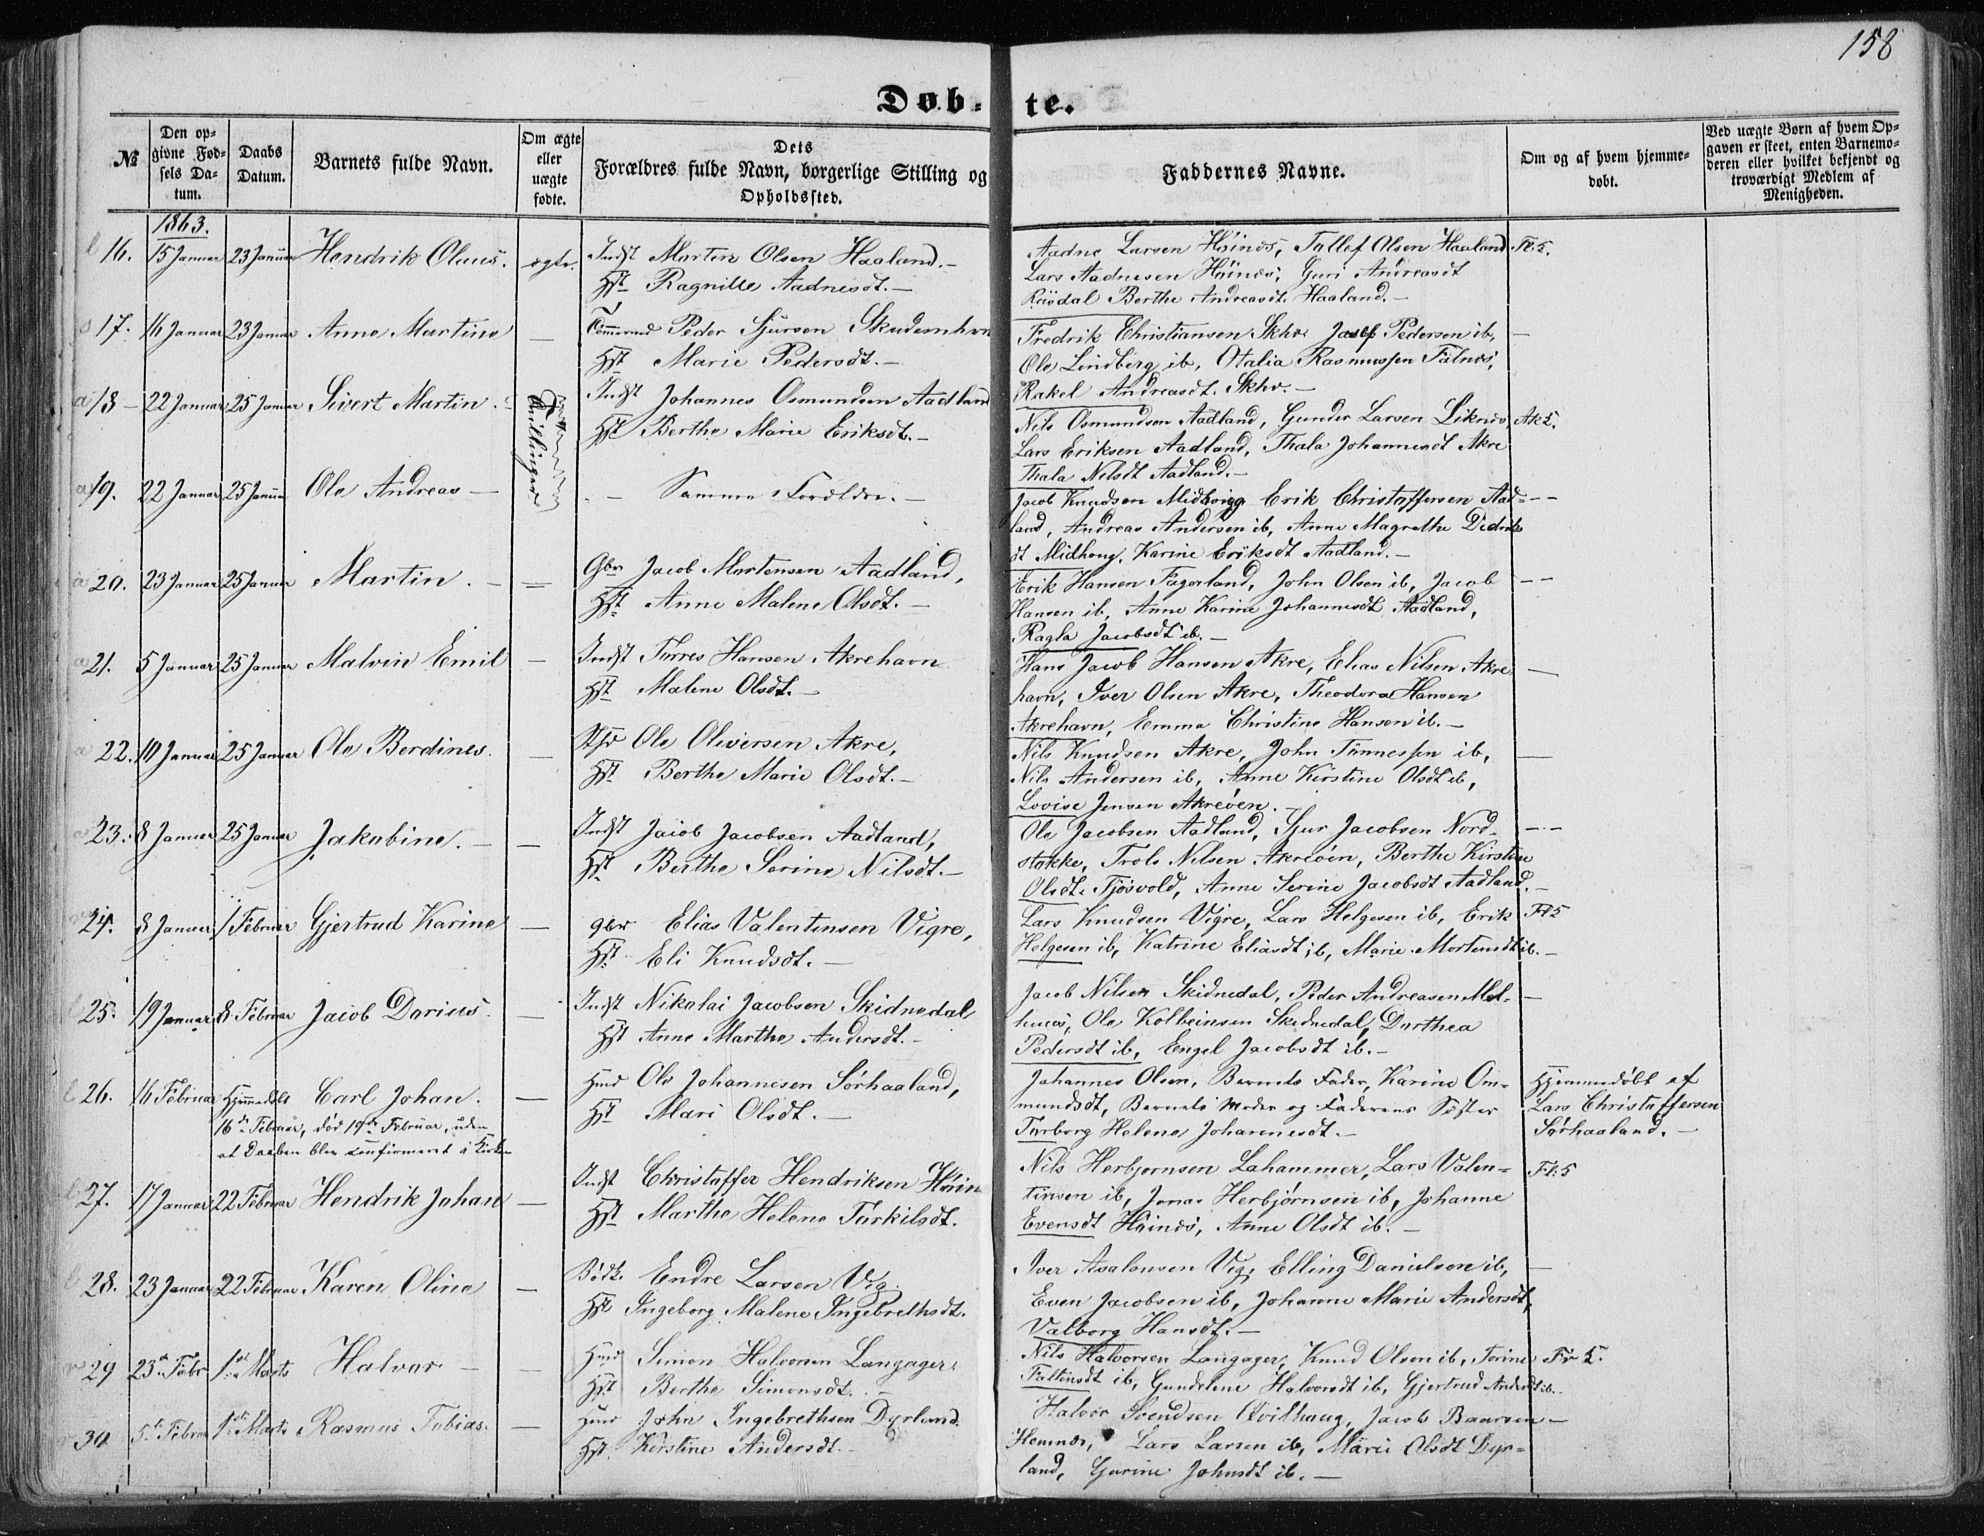 158
Døb-te.
№
Den op-
givne Fød-
sels Da-
tum.
Daabs
Datum.
Barnets fulde Navn.
Om ægte
eller
uægte
fødte.
Dets
Forældres fulde Navn, borgerlige Stilling og
Opholdssted.
Faddernes Navne.
Om og af hvem hjemme-
døbt.
Ved uægte Børn af hvem Op-
gaven er skeet, enten Barnemo-
deren eller hvilket bekjendt og
troværdigt Medlem af
Menigheden.
1863.
16. 15 Januar 23 Januar Hendrik Olaus. ægte. Indst Morten Olsen Haaland.-
Hst Ragnille Aadnesdt.-
Aadne Larsen Høines, Tallef Olsen Haaland Fl:5.
Lars Aadnesen Høines, Guri Andreasdt
Berthe Andreasdt. Haaland.-
17. 16 Januar 23 Januar Anne Martine - Peder Sjursen Skudesnhvn
Hst Marie Pedersdt.-
Fredrik Christiansen Skhv. Pedersen ib, -
Ole Lindberg ib, Otalia Rasmussen Falnes,
Rakel Andreasdt. Skhv.-
18- 22 Januar 25 Januar Sivert Martin. Tvillinger Indst Johannes Osmundsen Aadland
Hst Berthe Marie Eriksdt.-
Nils Osmundsen Aadland, Gunder Larsen Liknes, Ak5.
Lars Eriksen Aadland, Thala Johannesdt Akre
Thala Nilsdt Aadland.-
19. 22 Januar 25 Januar Ole Andreas - - Samme Forældre.-
Jacob Knudsen Midhoug Erik Christoffersen Aad- --
land, Andreas Andersen ib, Anne Magrethe Didriks
dt Midhoug, Karine Eriksdt Aadland.-
20. 23 Januar 25 Januar Martin. - - Gbr Jacob Mortensen Aadland,
Hst Anne Malene Olsdt.-
Erik Hansen Fagerland, John Olsen ib, Jacob --
Hansen ib, Anne Karine Johannesdt Aadland,
Ragla Jacobsdt ib.-
21. 5 Januar 25 Januar Malvin Emil - Indst Torres Hansen Akrehavn
Hst Malene Olsdt.-
Hans Jacob Hansen Akre, Elias Nilsen Akre -
havn, Iver Olsen Akre, Theodora Hansen
Akrehavn, Emma Christine Hansen ib.-
22. 10 Januar 25 Januar Ole Berdines. - Ole Oliversen Akre,
Hst Berthe Marie Olsdt.-
Nils Knudsen Akre, John Tønnessen ib, -
Nils Andersen ib, Anne Kirstine Olsdt ib,
Lovise Jensen Akreøen.-
23. 8 Januar 25 Januar Jakobine. - - Indst Jacob Jacobsen Aadland,
Hst Berthe Serine Nilsdt.-
Ole Jacobsen Aadland, Sjur Jacobsen Nord- --
stokke, Trols Nilsen Akreøen, Berthe Kirstine
Olsdt. Tjøsvold, Anne Serine Jacobsdt Aadland.-
24. 8 Januar 1 Februar Gjertrud Karine - gbr Elias Valentinsen Vigre,
Hst Eli Knudsdt.-
Lars Knudsen Vigre, Lars Helgesen ib, Erik Fl5
Helgesen ib, Katrine Eliasdt ib, Marie Mortensdt ib.-
25. 19 Januar 8 Februar Jacob Darius. - Indst Nikolai Jacobsen Skidnedal,
Hst Anne Marthe Andersdt.-
Jacob Nilsen Skidnedal, Peder Andreasen Mel- -
huus, Ole Kolbeinsen Skidnedal, Dorthea
Pedersdt ib, Engel Jacobsdt ib.-
26. 16 Februar Hjemmedøbt Carl Johan. - Hmd Ole Johannesen Sørhaaland,
16de Februar, død 19de Februar, uden
at Daaben blev confirmeret i Kirken
Hst Mari Olsdt.-
Johannes Olsen, Barnets Fader, Karine Om-
mundsdt, Barnets Moder og Faderens Søster
Torborg Helene Johannesdt.-
Hjemmedøbt af
Lars Christoffersen
Sørhaaland.-
27. 17 Januar 22 Februar Hendrik Johan - Indst Christoffer Hendriksen Høin
Hst Marthe Helene Torkilsdt.
Nils Herbjørnsen Lahammer, Lars Valen- Fl:5
tinsen ib, Jonas Herbjørnsen ib, Johanne
Evensdt Høines, Anne Olsdt ib.-
28. 23 Januar 22 Februar Karen Oline - Bødk. Endre Larsen Vig.
Hst Ingeborg Malene Ingebrethsdt.
Iver Asalonsen Vig, Elling Danielsen ib, -
Even Jacobsen ib, Johanne Marie Andersdt,
Valborg Hansdt.-
29 23de Febr 1ste Marts Halvor - - Hmd Simon Halvorsen Langager
Hst Berthe Simonsdt.-
Nils Halvorsen Langager, Knud Olsen ib, Torine Fr 5.
Faltinsdt ib, Gundelene Halvorsdt ib, Gjertrud Andersdt ib.
30 5te Febru 1ste Marts Rasmus Tobias. - Hmd John Ingebrethsen Dyrland.
Hst. Kirstine Andersdt.-
Halvor Svendsen Qvilhaug, Jacob Baarsen -
Hemnes, Lars Larsen ib, Marie Olsdt Dyr-
land, Gurine Johnsdt ib.-